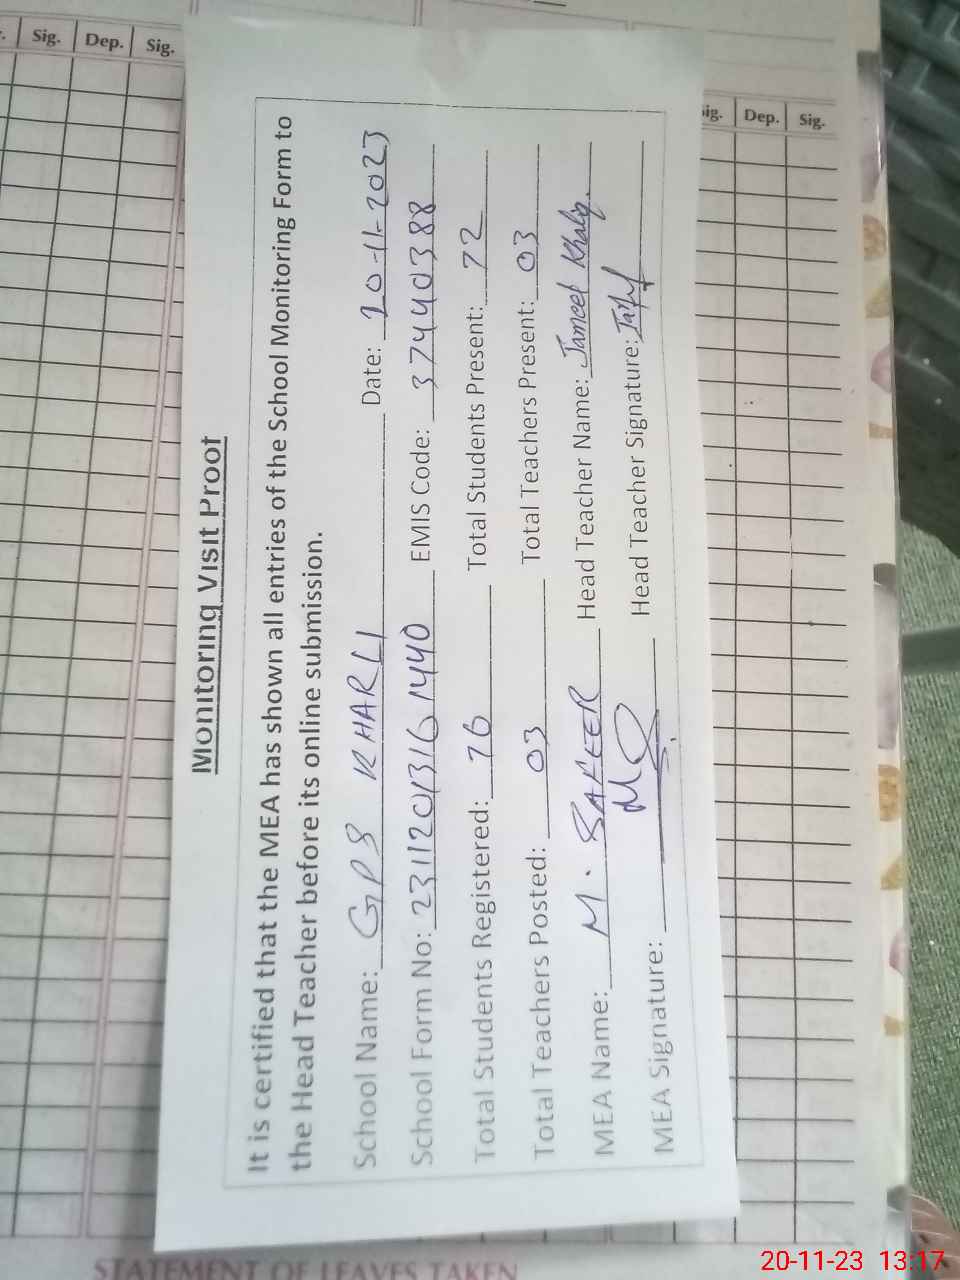 Monitoring Visit Proof
It is certified that the MEA has shown all entries of the School Monitoring Form to
the Head Teacher before its online submission.
School Name: GPS KHARLI Date: 20-11-2023
School Form No: 23112013161440 EMIS Code: 37440388
Total Students Registered: 76 Total Students Present: 72
Total Teachers Posted: 03 Total Teachers Present: 03
MEA Name: M. SAFEER Head Teacher Name: Jameel Khaliq.
MEA Signature: Head Teacher Signature:
Sig. Dep. Sig.
Sig. Dep. Sig.
STATEMENT OF LEAVES TAKEN
20-11-23 13:17